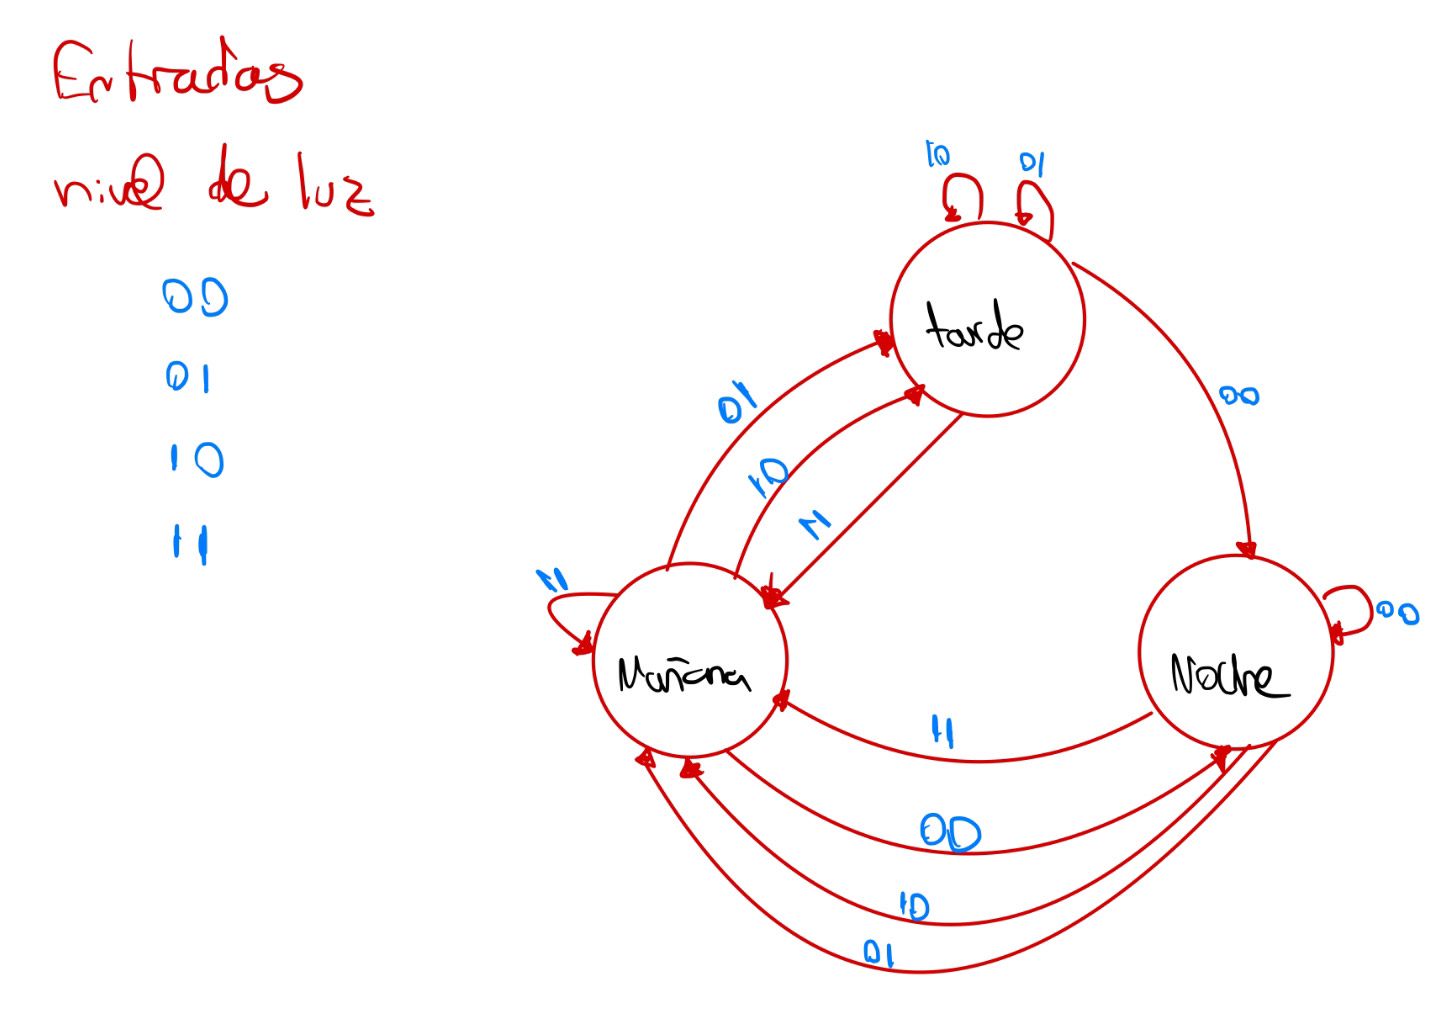 Entradas
nivel de luz
00
01
10
11
10
01
tarde
00
01
10
11
11
00
Mañana
Noche
11
00
10
01